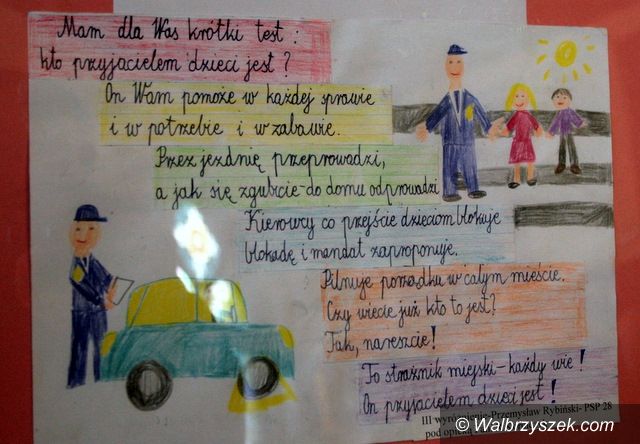 Mam dla Was krótki test :
kto przyjacielem dzieci jest ?
On Wam pomoże w każdej sprawie
i w potrzebie i w zabawie.
Przez jezdnię przeprowadzi,
a jak się zgubicie-do domu odprowadzi
Kierowcy co przejście dzieciom blokuje
blokadę i mandat zaproponuje.
Pilnuje porządku w całym mieście.
Czy wiecie już kto to jest?
Tak, nareszcie!
To strażnik miejski-każdy wie!
On przyjacielem dzieci jest!
III wyróżnienie-Przemysław Rybiński- PSP 28
pod opieką
© Walbrzyszek.com